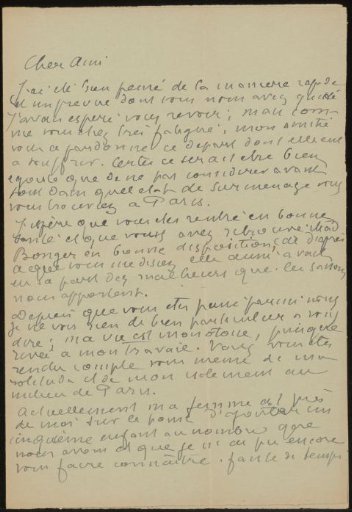 Cher Ami
J'ai été bien peiné de la manière rapide
et imprévue dont vous nous avez quitté
J'avais espéré vous revoir; mais com-
me vous étiez très fatigué, mon amitié
vous a pardonné ce départ dont elle eut
à souffrir. Certes ce serait être bien
égoïste que de ne pas considérer avant
tout dans quel état de surmenage vous
vous trouviez à Paris.
J'espère que vous êtes rentré en bonne
santé et que vous avez retrouvé Mad
Bonger en bonne disposition, d'après
ce que vous me disiez elle aussi a
eu sa part des malheurs que les
nous apportent.
Depuis que vous êtes parti parmi nous
je ne vois rien de bien particulier à vous
dire; ma vie est monotone, puisque
rivée à mon travail. Vous vous êtes
rendu compte vous même de ma
solitude et de mon isolement au
milieu de Paris.
Actuellement ma femme est près
de moi sur le point d'ajouter un
cinquième enfant au nombre que
nous avons et que je n'ai pu encore
vous faire connaître. faute de temps